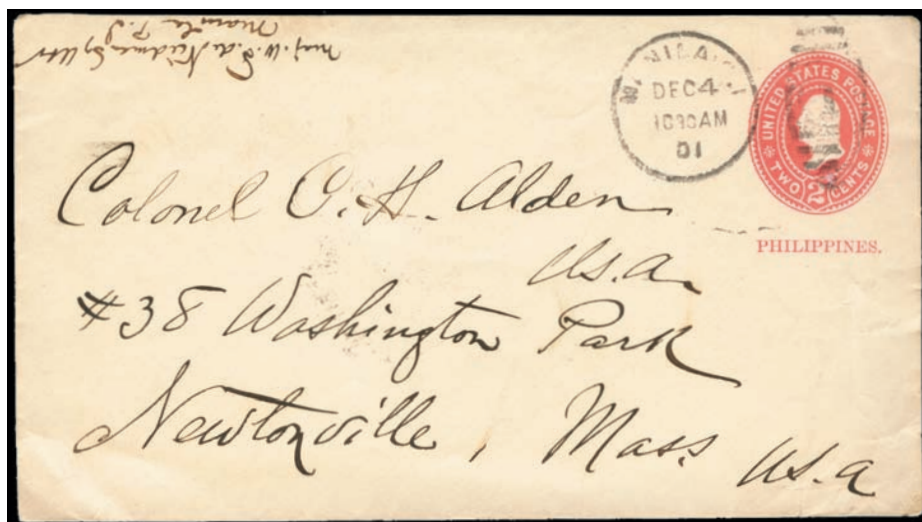 Manila P.I.
Maj. W. F. de
MANILA P.I.
DEC 4
1030AM
01
UNITED STATES POSTAGE
TWO 2 CENTS
PHILIPPINES.
Colonel C. H. Alden
U.S.A.
#38 Washington Park
Newtonville, Mass. U.S.A